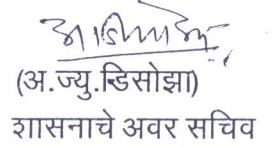 (अ.ज्यु.न्डिसोझा)
शासनाचे अवर सचिव